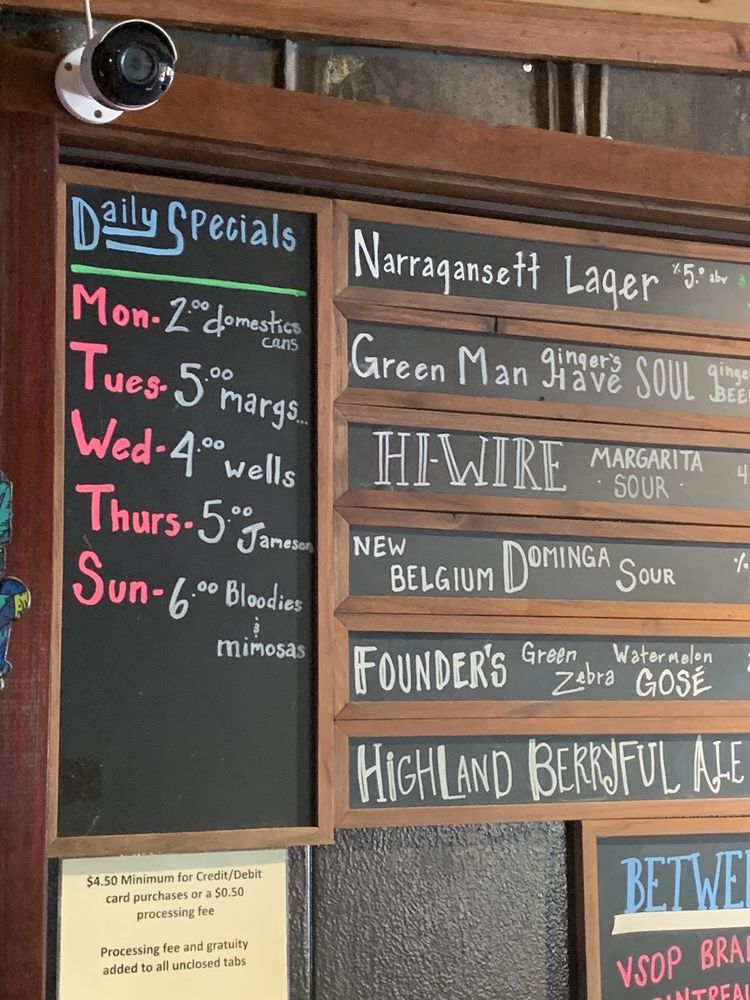 Daily Specials
Mon- 2.00 domestics
cans
Tues- 5.00 margs...
Wed- 4.00 wells
Thurs- 5.00 Jameson
Sun- 6.00 Bloodies
&
mimosas
Narragansett Lager %5.0 abv
Green Man ginger's Have SOUL ginge
BEE
HI-WIRE MARGARITA
SOUR 4
NEW
BELGIUM DOMINGA SOUR %
FOUNDER'S Green Zebra Watermelon GOSÉ
HIGHLAND BERRYFUL ALE
$4.50 Minimum for Credit/Debit
card purchases or a $0.50
processing fee
Processing fee and gratuity
added to all unclosed tabs
BETWE
VSOP BRA
NTREAU